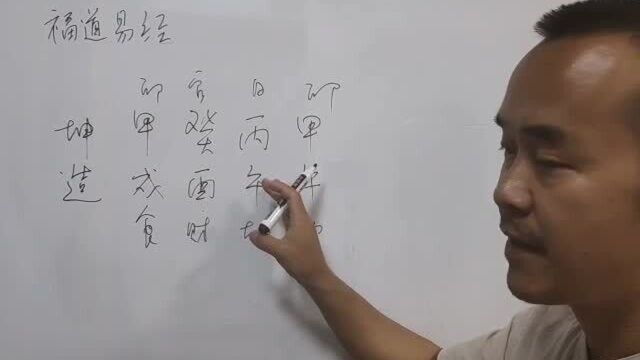 福道易经
印 官 日 印
坤 甲 癸 丙 甲
造 戌 酉 午
食 财